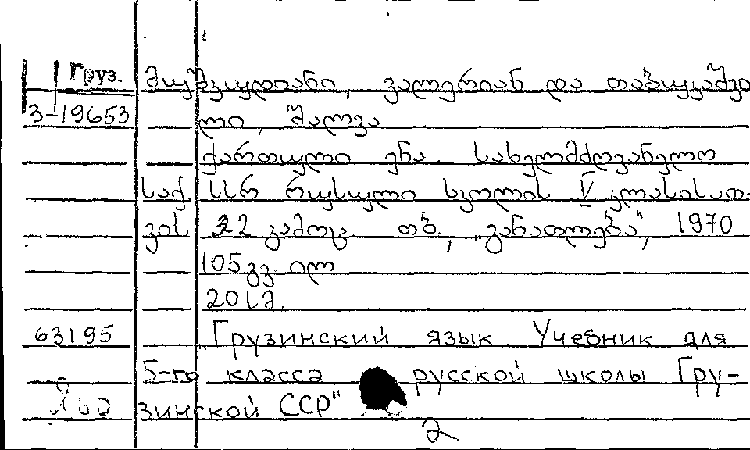 Груз. მიქელადიანი, ვალერიან და თაბუკაშვი
3-19653 ლი, შალვა
ქართული ენა. სახელმძღვანელო
საქ სსრ რუსული სკოლის V კლასისათ-
ვის 22 გამოც. თბ., „განათლება", 1970
105 გვ. ილ
20 სმ.
63195 „Грузинский язык Учебник для
5-го класса русской школы Гру-
зинской ССР"
2